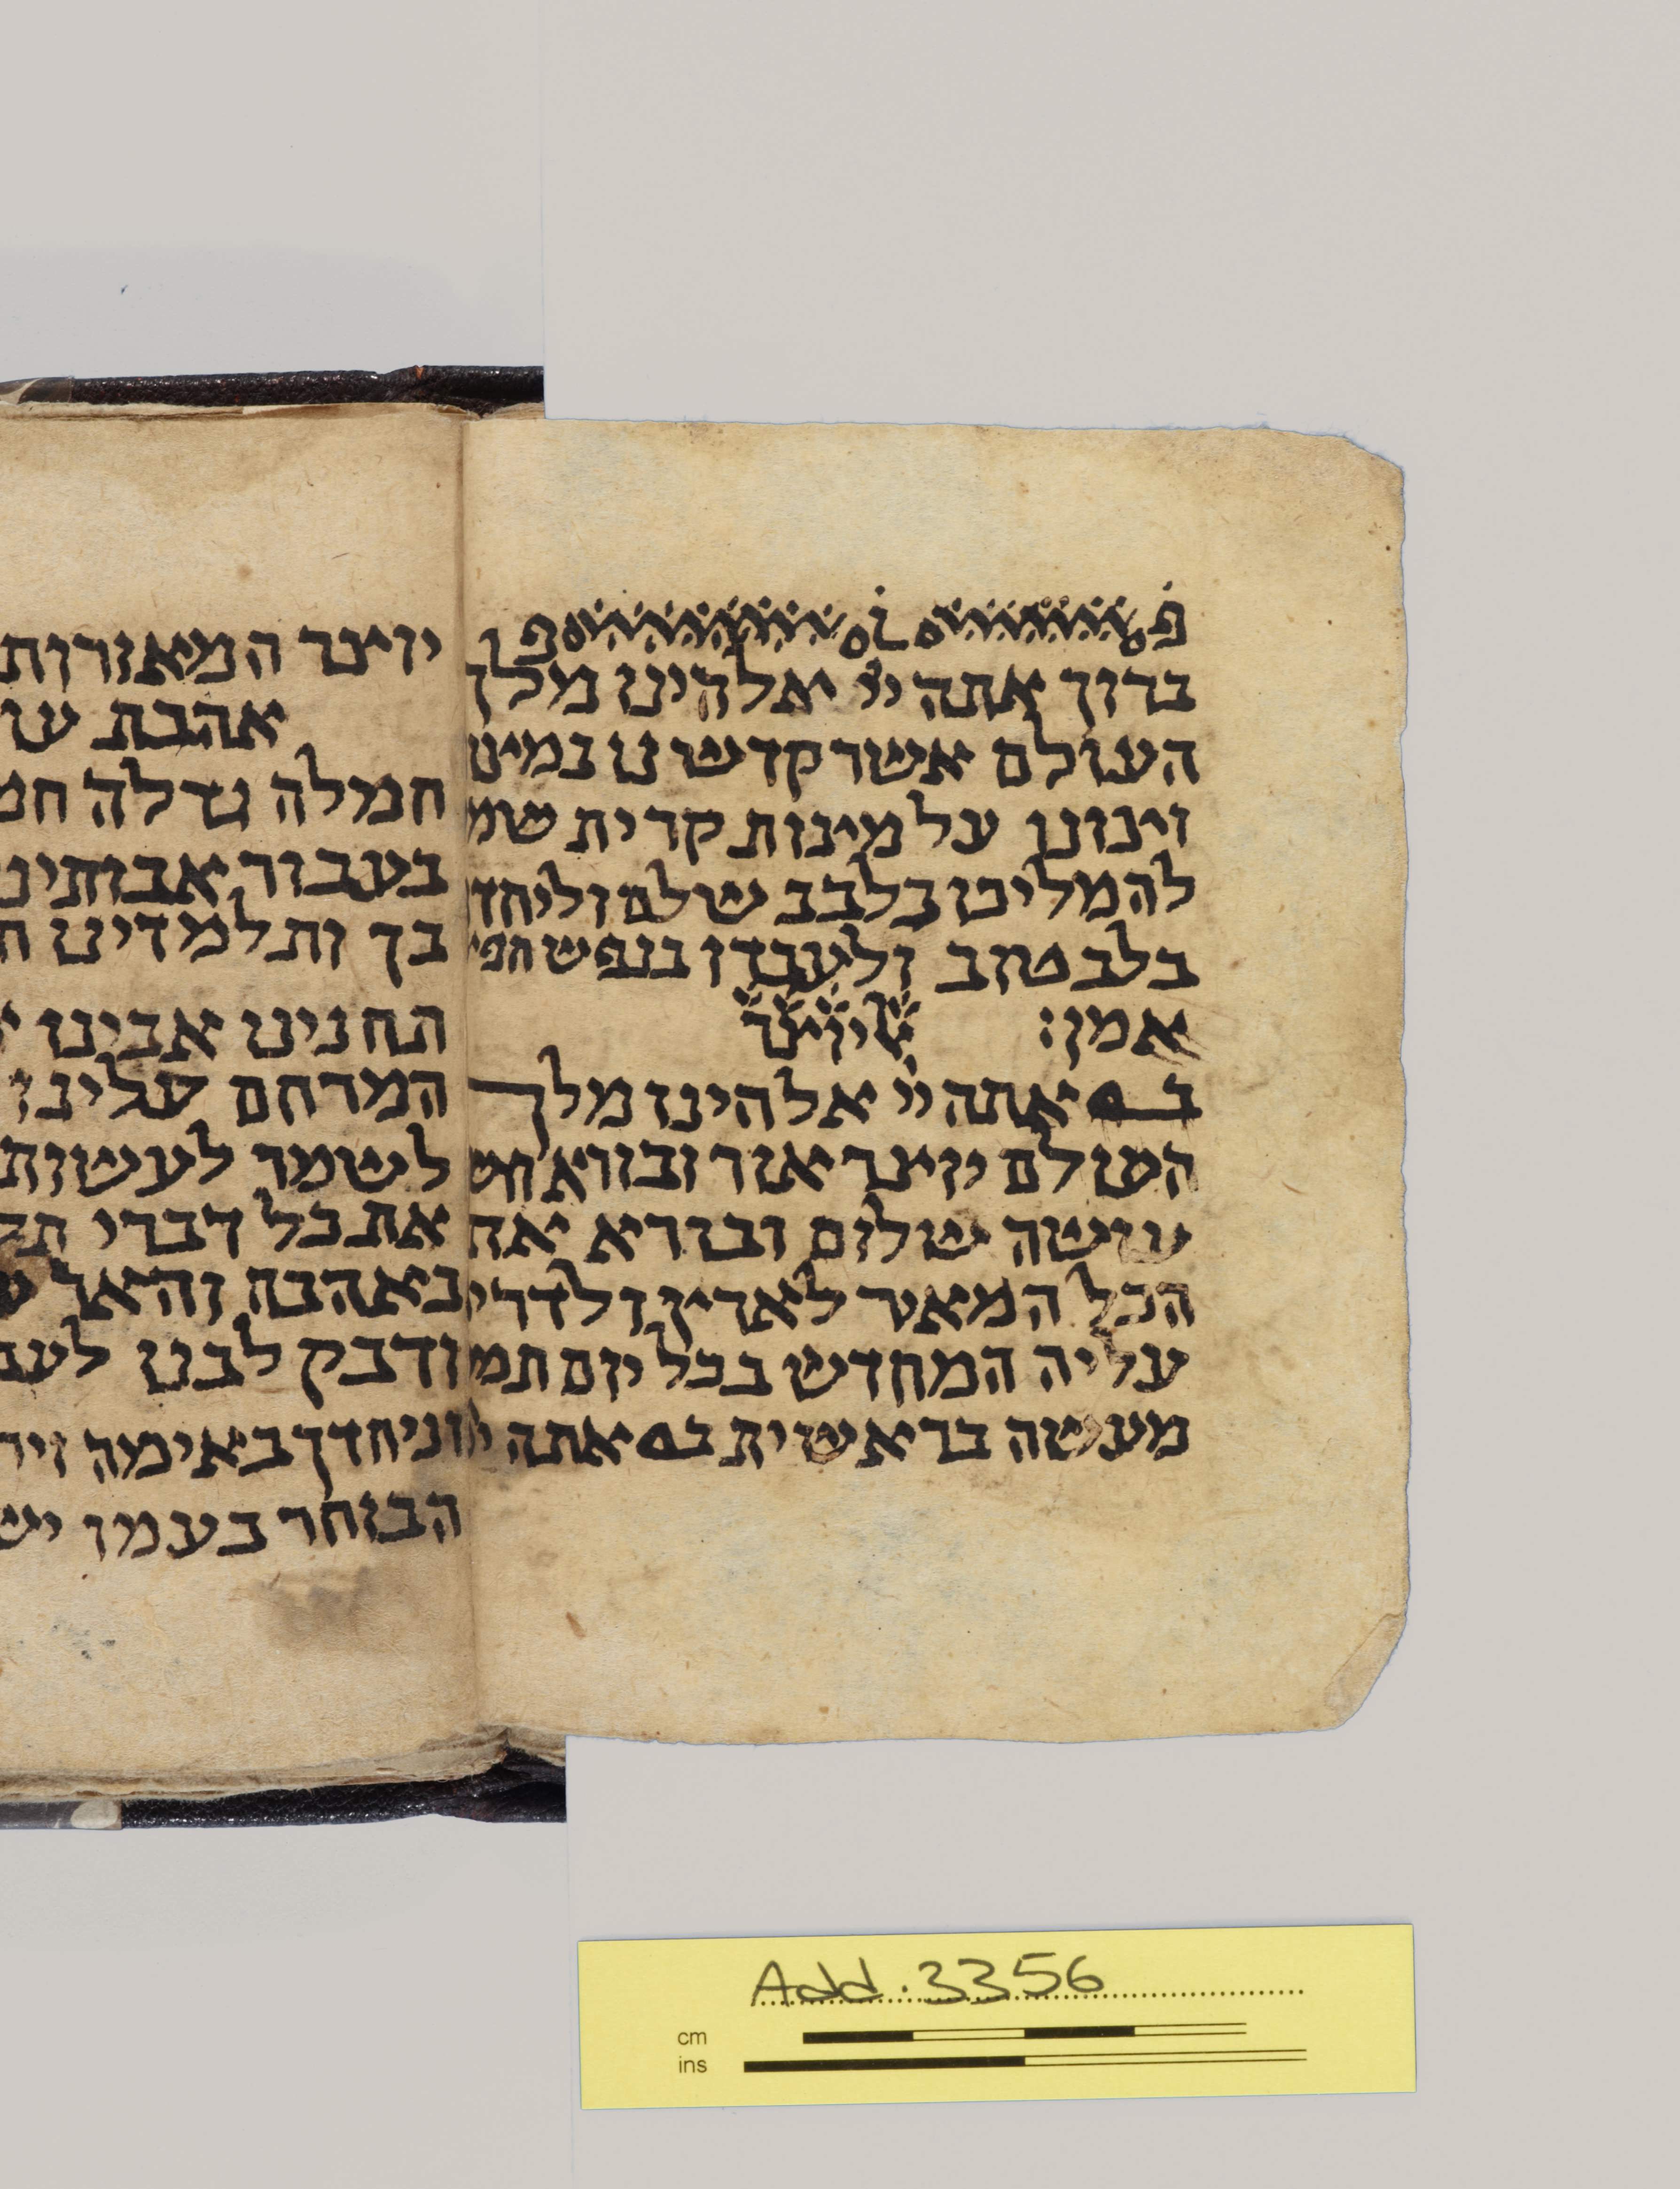 ברוך אתה ייי אלהינו מלך
העולם אשר קדשנו במיצו
וצונו על מיצות קרית שמ
להמליכו בלבב שלם וליחדו
בלב טוב ולעבדו בנפש חפי
אמן:
יוצר
ב אתה ייי אלהינו מלך
העולם יוצר אור ובורא חש
עושה שלום ובורא את
הכל המאיר לארץ ולדרי
עליה המחדש בכל יום תמ
מעשה בראשית ב אתה
יוצר המאורות
אהבת עו
חמלה גדלה
בעבור אבותינ
בך ותלמדינו ח
תחנינו אבינו
המרחם עלינו
לשמר לעשות
את כל דברי
באהבה והאר
ודבק לבנו
וניחדך באימה
הבוחר בעמו יש
Add. 3356
cm
ins